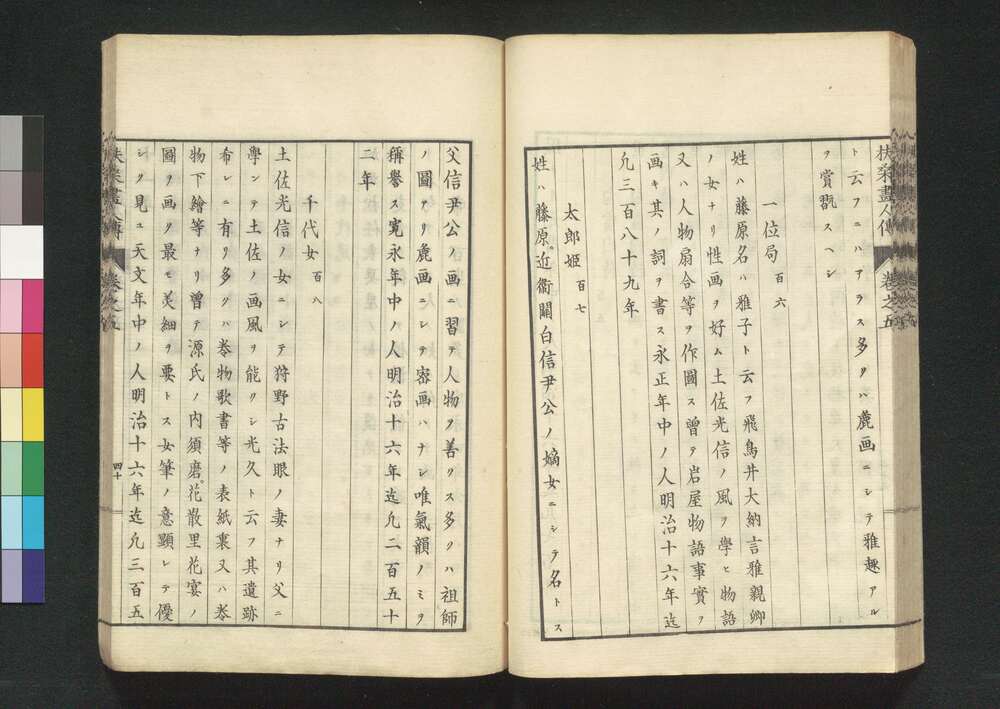 扶桑畫人傳 卷之五
ト云フニハアラス多クハ麁画ニシテ雅趣アル
ヲ賞翫スヘシ
一位局 百六
姓ハ藤原名ハ雅子ト云フ飛鳥井大納言雅親卿
ノ女ナリ性画ヲ好ム土佐光信ノ風ヲ學ヒ物語
又ハ人物扇合等ヲ作圖ス曽テ岩屋物語事實ヲ
画キ其ノ詞ヲ書ス永正年中ノ人明治十六年迄
凢三百八十九年
太郎姫 百七
姓ハ藤原近衞關白信尹公ノ嫡女ニシテ名トス
父信尹公ノ画ニ習テ人物ク善クス多クハ祖師
ノ圖ヲリ麁画ニシテ密画ハナシ唯氣韻ノミヲ
稱譽ス寛永年中ノ人明治十六年迄凢二百五十
二年
千代女 百八
土佐光信ノ女ニシテ狩野古法眼ノ妻ナリ父ニ
學ンテ土佐ノ画風ヲ能クシ光久ト云フ其遺跡
希レニ有リ多クハ巻物歌書等ノ表紙裏又ハ巻
物下繪等ナリ曽テ源氏ノ内須磨花散里花宴ノ
圖ヲ画ク最モ美細ヲ要トス女筆ノ意顕レテ優
シク見ユ天文年中ノ人明治十六年迄凢三百五
扶桑畫人傳 卷之五 四十